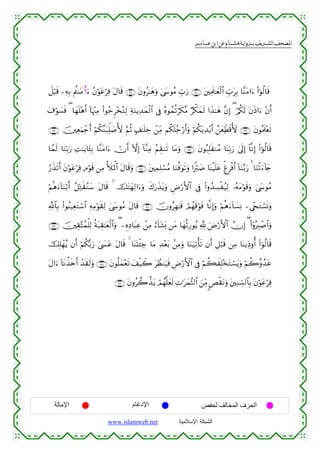 المصحف الشريف برواية هشام عن ابن عامر
قَالُوٓاْ ءَامَنَّا بِرَبِّ ٱلْعَٰلَمِينَ ۝ رَبِّ مُوسَىٰ وَهَٰرُونَ ۝ قَالَ فِرْعَوْنُ ءَاٰمَنتُم بِهِۦ قَبْلَ
أَنْ ءَاذَنَ لَكُمْ ۖ إِنَّ هَٰذَا لَمَكْرٌ مَّكَرْتُمُوهُ فِى ٱلْمَدِينَةِ لِتُخْرِجُواْ مِنْهَآ أَهْلَهَا ۖ فَسَوْفَ
تَعْلَمُونَ ۝ لَأُقَطِّعَنَّ أَيْدِيَكُمْ وَأَرْجُلَكُم مِّنْ خِلَٰفٍ ثُمَّ لَأُصَلِّبَنَّكُمْ أَجْمَعِينَ ۝
قَالُوٓاْ إِنَّآ إِلَىٰ رَبِّنَا مُنقَلِبُونَ ۝ وَمَا تَنقِمُ مِنَّآ إِلَّآ أَنْ ءَامَنَّا بِـَٔايَٰتِ رَبِّنَا لَمَّا
جَآءَتْنَا ۚ رَبَّنَآ أَفْرِغْ عَلَيْنَا صَبْرًا وَتَوَفَّنَا مُسْلِمِينَ ۝ وَقَالَ ٱلْمَلَأُ مِن قَوْمِ فِرْعَوْنَ أَتَذَرُ
مُوسَىٰ وَقَوْمَهُۥ لِيُفْسِدُواْ فِى ٱلْأَرْضِ وَيَذَرَكَ وَءَالِهَتَكَ ۚ قَالَ سَنُقَتِّلُ أَبْنَآءَهُمْ
وَنَسْتَحْىِۦ نِسَآءَهُمْ وَإِنَّا فَوْقَهُمْ قَٰهِرُونَ ۝ قَالَ مُوسَىٰ لِقَوْمِهِ ٱسْتَعِينُواْ بِٱللَّهِ
وَٱصْبِرُوٓاْ ۖ إِنَّ ٱلْأَرْضَ لِلَّهِ يُورِثُهَا مَن يَشَآءُ مِنْ عِبَادِهِۦ ۖ وَٱلْعَٰقِبَةُ لِلْمُتَّقِينَ ۝
قَالُوٓاْ أُوذِينَا مِن قَبْلِ أَن تَأْتِيَنَا وَمِنۢ بَعْدِ مَا جِئْتَنَا ۚ قَالَ عَسَىٰ رَبُّكُمْ أَن يُهْلِكَ
عَدُوَّكُمْ وَيَسْتَخْلِفَكُمْ فِى ٱلْأَرْضِ فَيَنظُرَ كَيْفَ تَعْمَلُونَ ۝ وَلَقَدْ أَخَذْنَآ ءَالَ
فِرْعَوْنَ بِٱلسِّنِينَ وَنَقْصٍ مِّنَ ٱلثَّمَرَٰتِ لَعَلَّهُمْ يَذَّكَّرُونَ ۝
الحرف المخالف لحفص الإدغام الإمالة
الشبكة الإسلامية www.islamweb.net